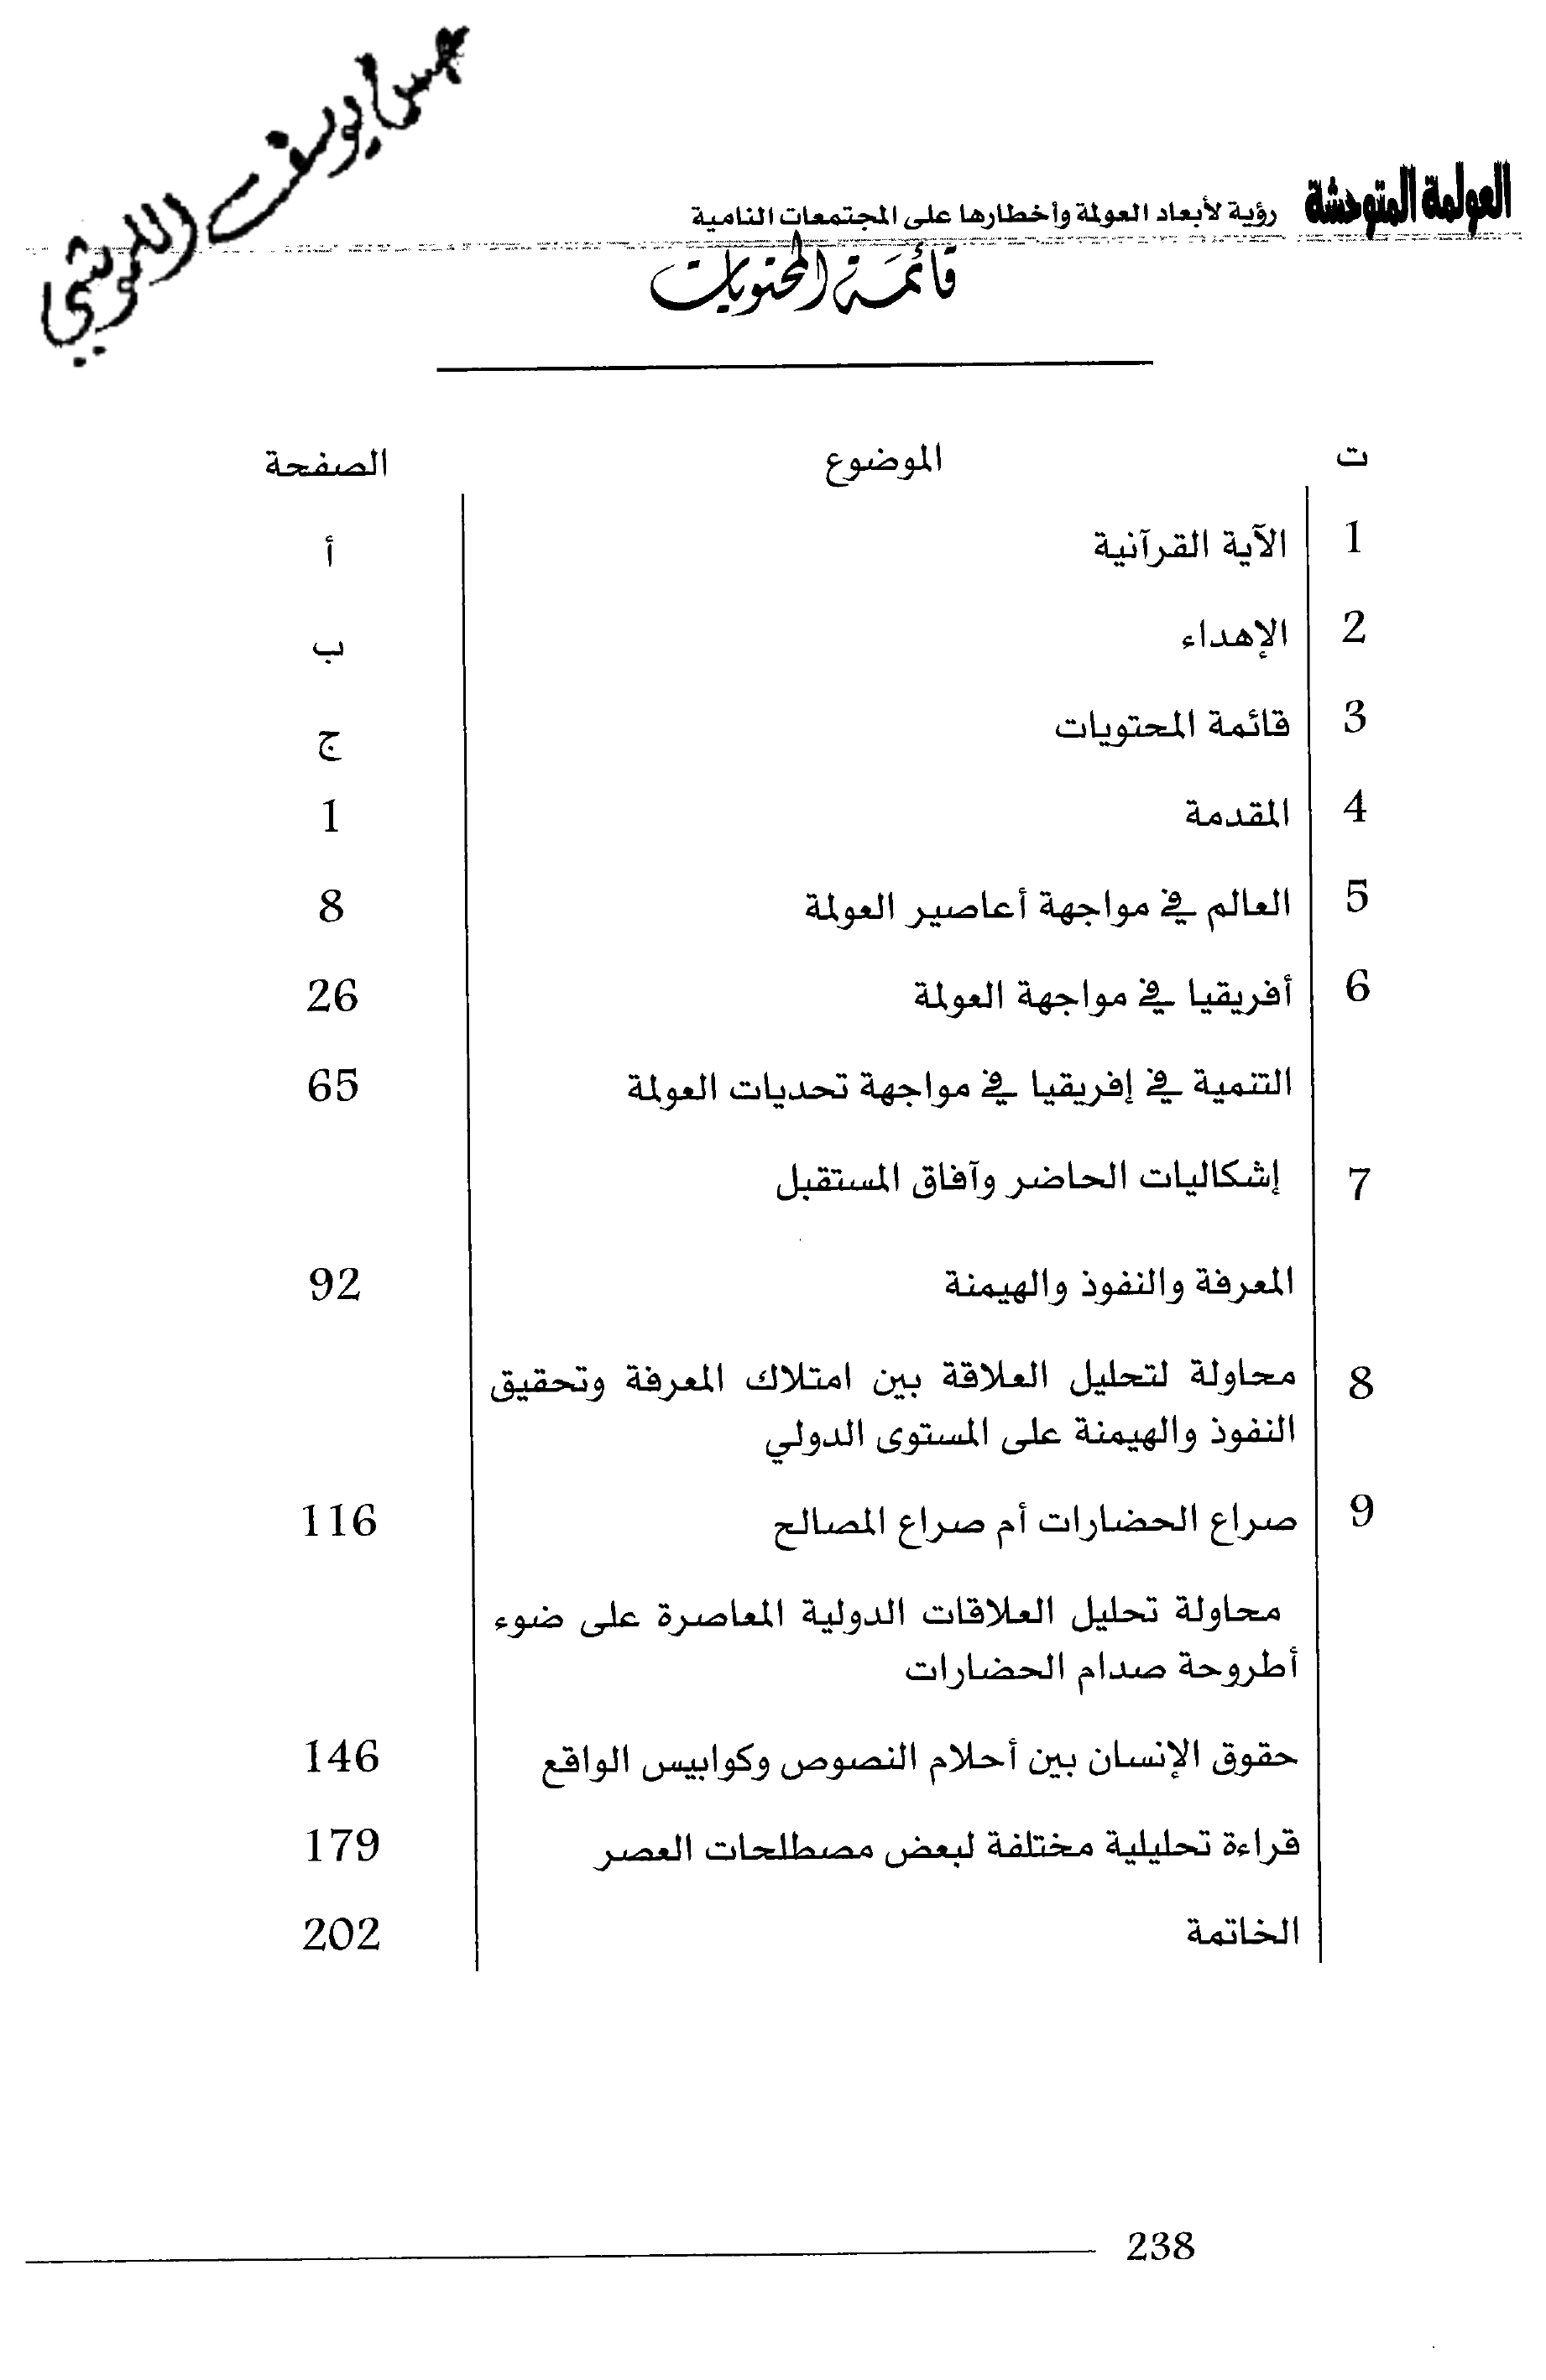 العولمة المتوحشة رؤية لأبعاد العولمة وأخطارها على المجتمعات النامية
قائمة المحتويات
ت الموضوع الصفحة
1 الآية القرآنية أ
2 الإهداء ب
3 قائمة المحتويات ج
4 المقدمة 1
5 العالم في مواجهة أعاصير العولمة 8
6 أفريقيا في مواجهة العولمة 26
التنمية في إفريقيا في مواجهة تحديات العولمة 65
7 إشكاليات الحاضر وآفاق المستقبل
المعرفة والنفوذ والهيمنة 92
8 محاولة لتحليل العلاقة بين امتلاك المعرفة وتحقيق
النفوذ والهيمنة على المستوى الدولي
9 صراع الحضارات أم صراع المصالح 116
محاولة تحليل العلاقات الدولية المعاصرة على ضوء
أطروحة صدام الحضارات
حقوق الإنسان بين أحلام النصوص وكوابيس الواقع 146
قراءة تحليلية مختلفة لبعض مصطلحات العصر 179
الخاتمة 202
238